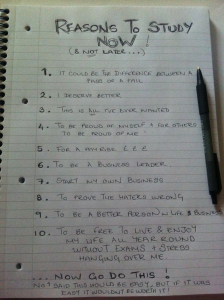 REASONS TO STUDY
NOW!
(& NOT LATER...)
1. IT COULD BE THE DIFFERENCE BETWEEN A
PASS OR A FAIL
2. I DESERVE BETTER
3. THIS IS ALL I'VE EVER WANTED
4. TO BE PROUD OF MYSELF & FOR OTHERS
TO BE PROUD OF ME
5. FOR A PAY RISE £££
6. TO BE A BUSINESS LEADER
7. START MY OWN BUSINESS
8. TO PROVE THE HATERS WRONG
9. TO BE A BETTER PERSON IN LIFE & BUSINESS
10. TO BE FREE TO LIVE & ENJOY
MY LIFE ALL YEAR ROUND
WITHOUT EXAMS & STRESS
HANGING OVER ME
... NOW GO DO THIS!
SAID THIS WOULD BE EASY, BUT IF IT WAS
EASY IT WOULDN'T BE WORTH IT!